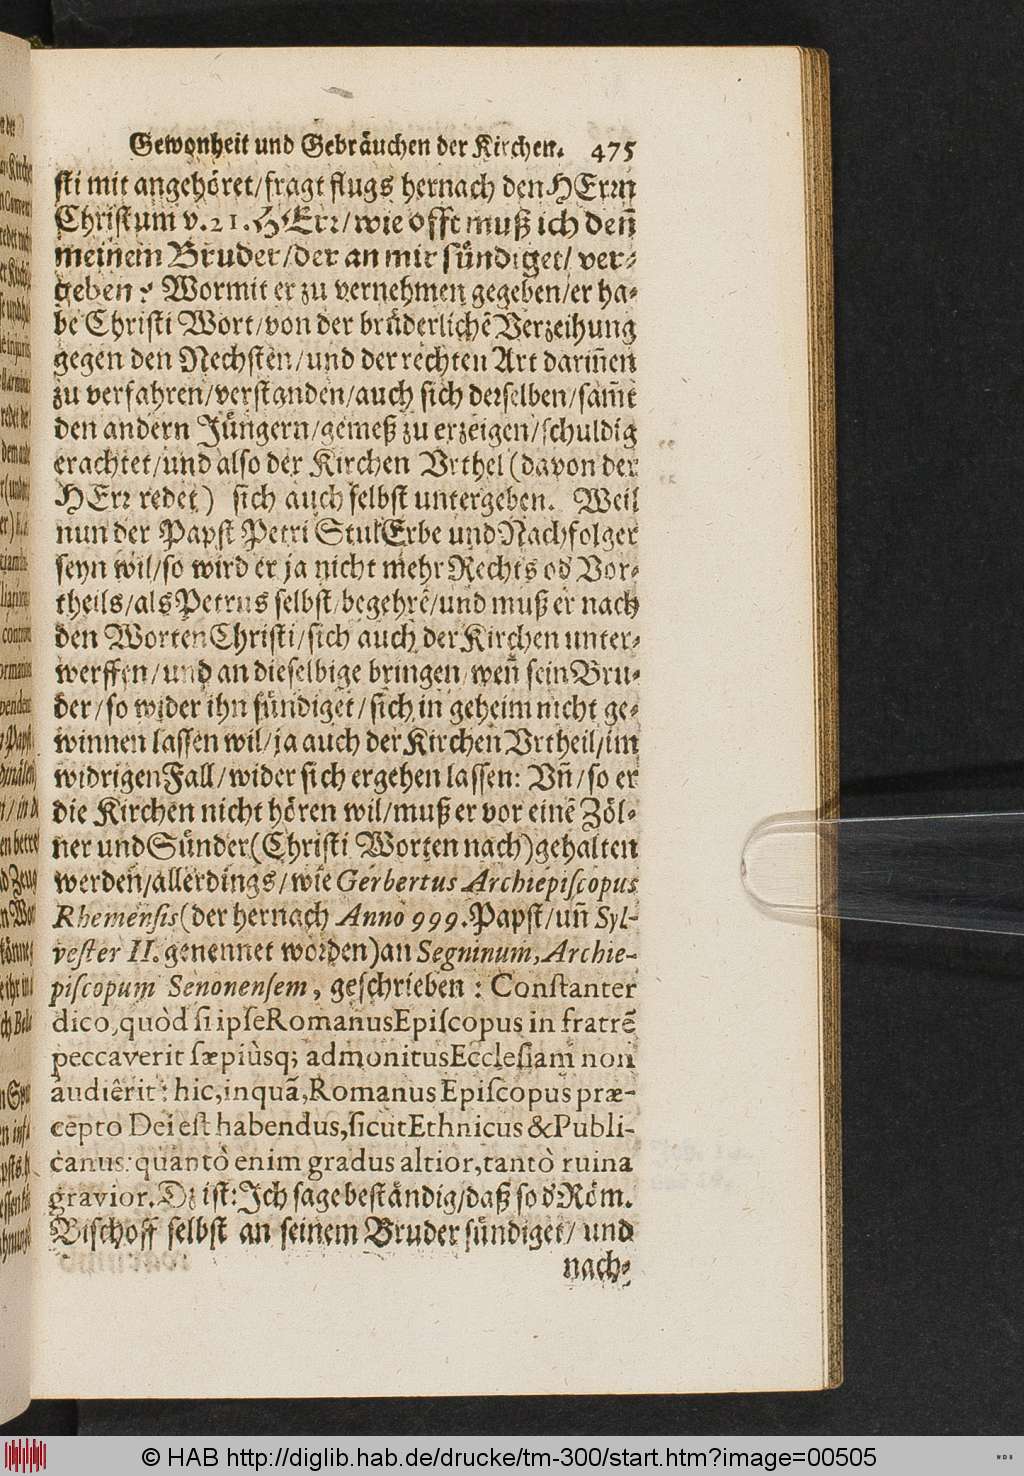 Gewonheit und Gebräuchen der Kirchen. 475
sti mit angehöret/fragt flugs hernach den HErrn
Christum v. 21. HErr/wie offt muß ich deñ
meinem Bruder/der an mir sündiget/ ver-
geben? Wormit er zu vernehmen gegeben/er ha-
be Christi Wort/von der brüderlichẽ Verzeihung
gegen den Nechsten/und der rechten Art dariñen
zu verfahren/verstanden/auch sich derselben/sam̃t
den andern Jüngern/gemeß zu erzeigen/schuldig
erachtet/und also der Kirchen Vrthel (davon der
HErr redet) sich auch selbst untergeben. Weil
nun der Papst Petri StulErbe und Nachfolger
seyn wil/so wird er ja nicht mehr Rechts od' Vor-
theils/als Petrus selbst/begehrẽ/und muß er nach
den Worten Christi/sich auch der Kirchen unter-
werffen/und an dieselbige bringen/weñ sein Bru-
der/so wider ihn sündiget/sich in geheim nicht ge-
winnen lassen wil/ja auch der Kirchen Vrtheil/im
widrigen Fall/wider sich ergehen lassen: Vñ/so er
die Kirchen nicht hören wil/muß er vor einẽ Zöl-
ner und Sünder(Christi Worten nach)gehalten
werden/allerdings/wie Gerbertus Archiepiſcopus
Rhemenſis(der hernach Anno 999. Papst/uñ Syl-
veſter II. genennet worden)an Segninum, Archie-
piſcopum Senonenſem, geschrieben: Conſtanter
dico, quòd ſi ipſe Romanus Epiſcopus in fratrẽ
peccaverit ſæpiùsq; admonitus Eccleſiam non
audiêrit: hic, inquã, Romanus Epiſcopus præ-
cepto Dei eſt habendus, ſicut Ethnicus & Publi-
canus: quantò enim gradus altior, tantò ruina
gravior. Dz ist: Ich sage beständig/daß so d' Röm.
Bischoff selbst an seinem Bruder sündiget/ und
nach-
© HAB http://diglib.hab.de/drucke/tm-300/start.htm?image=00505